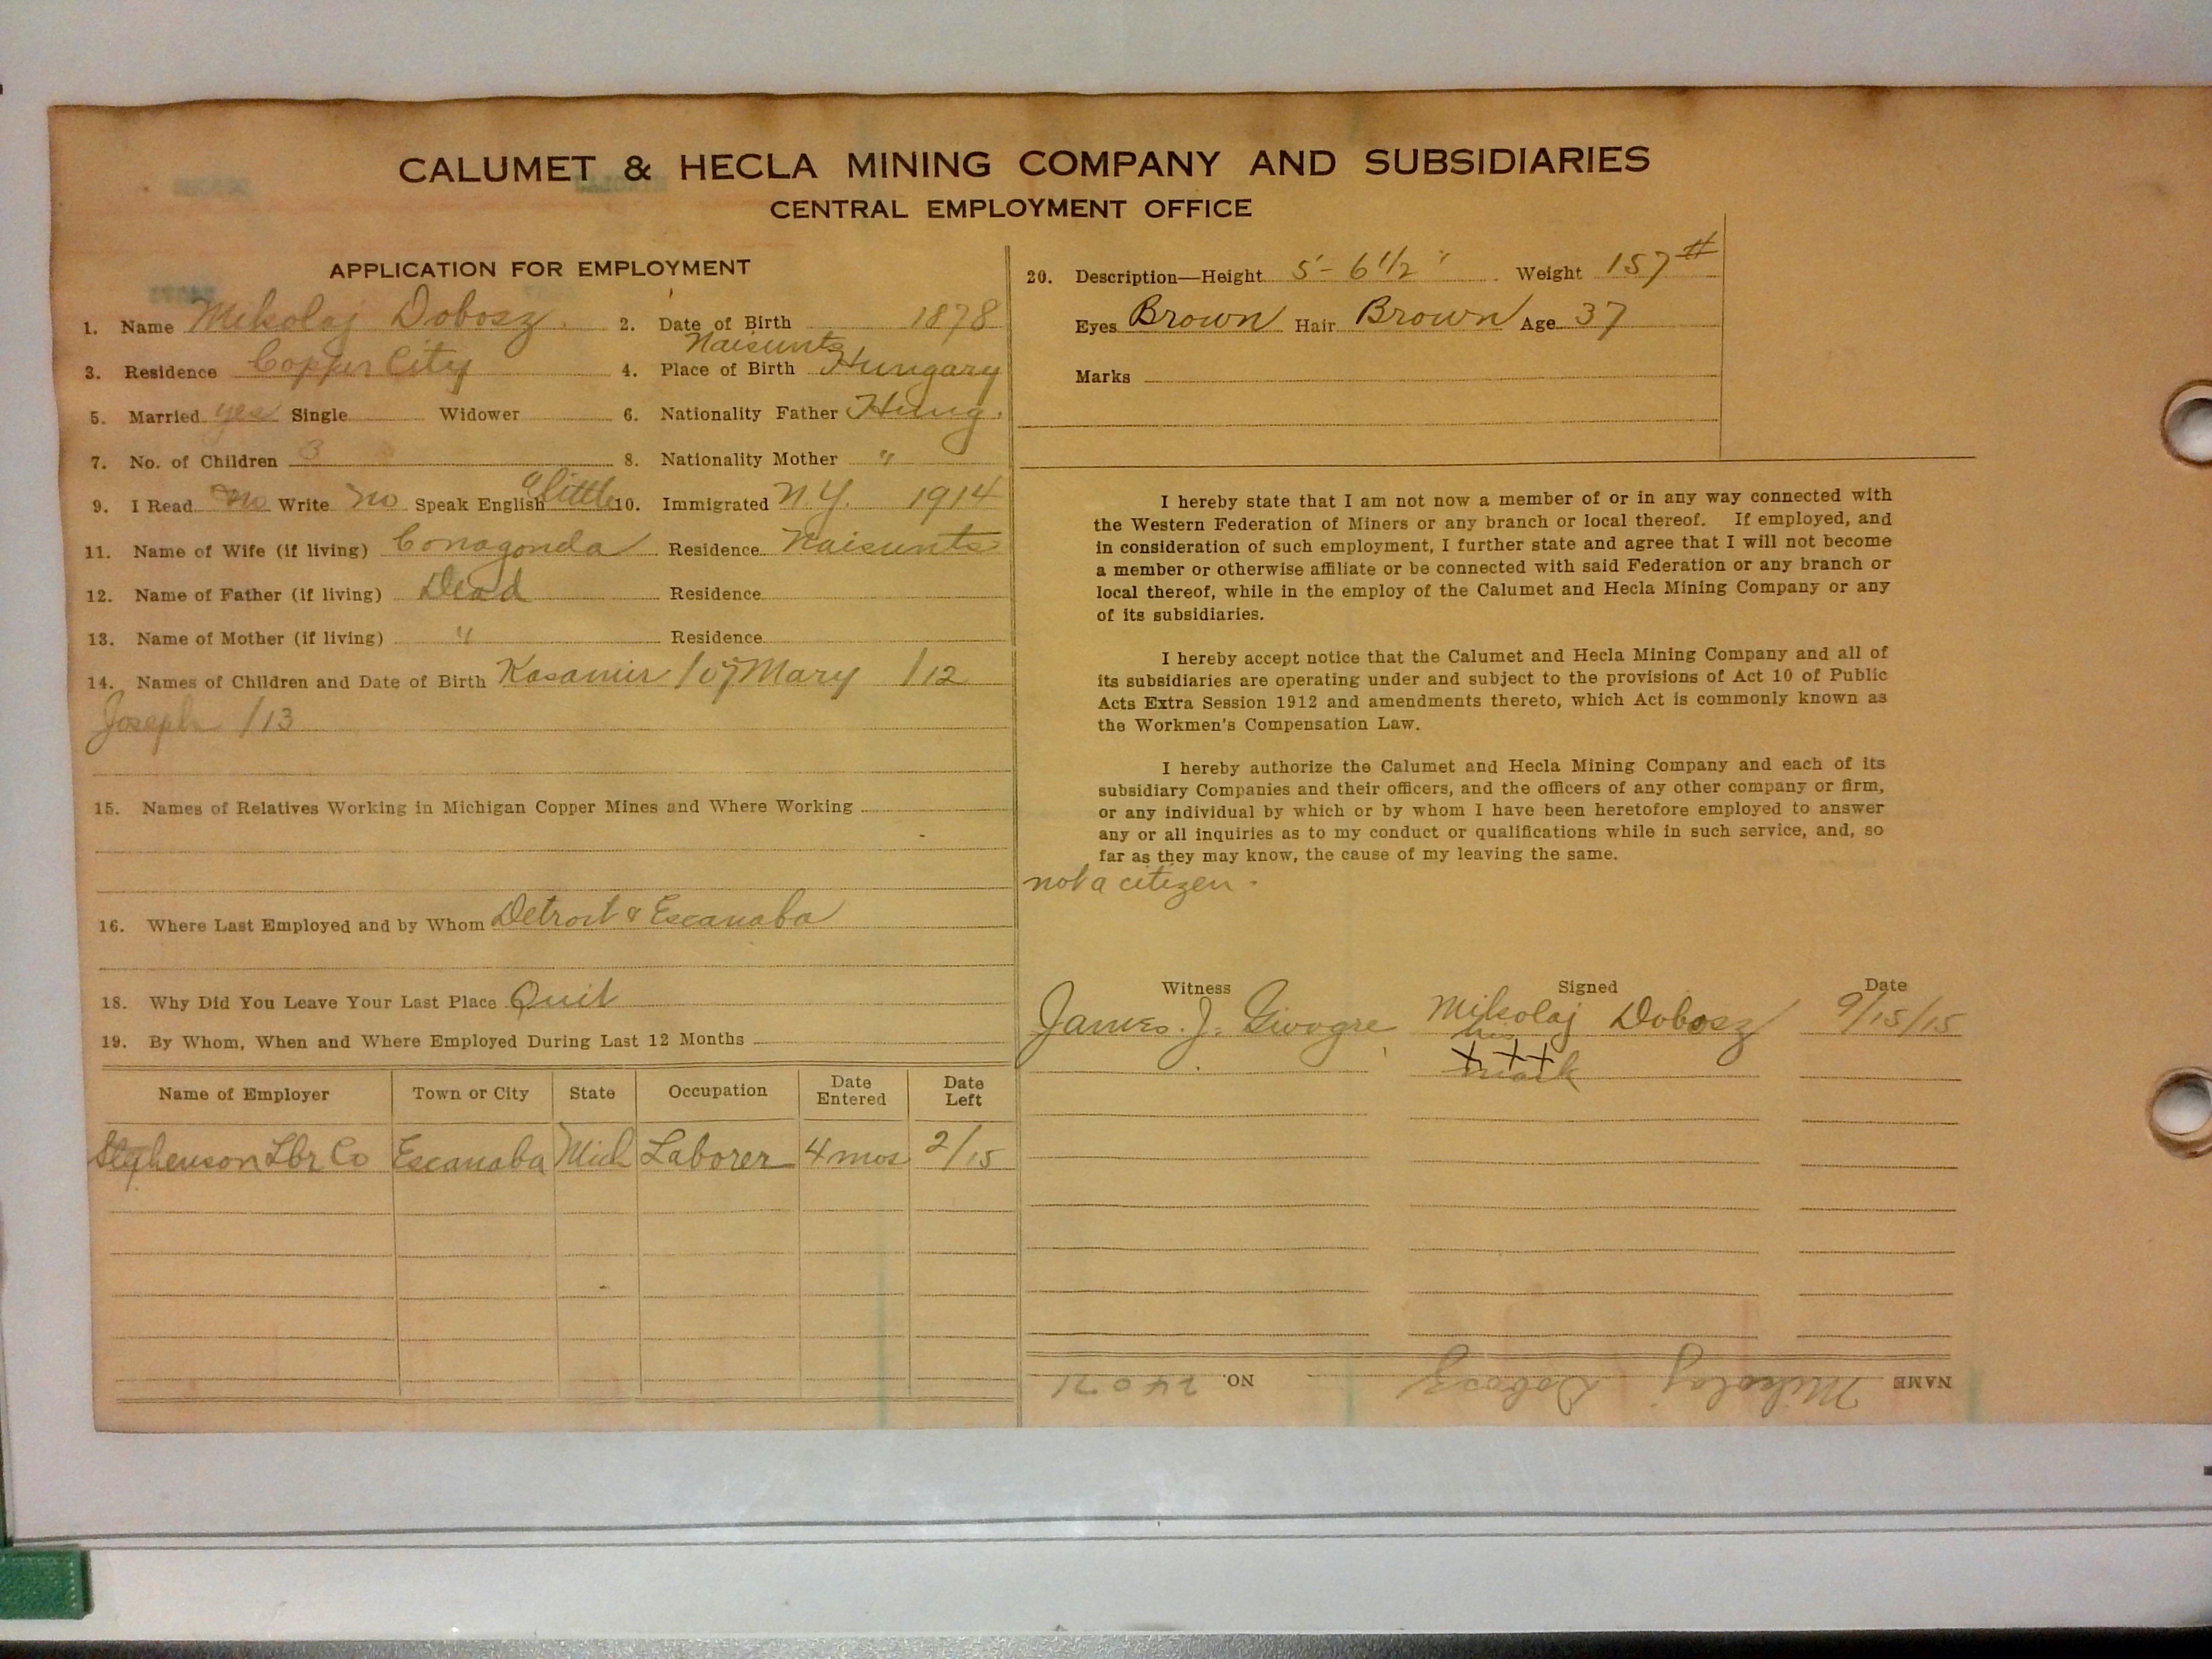 CALUMET & HECLA MINING COMPANY AND SUBSIDIARIES
CENTRAL EMPLOYMENT OFFICE
APPLICATION FOR EMPLOYMENT
1. Name Mikolaj Dobosz 2. Date of Birth 1878
3. Residence Copper City 4. Place of Birth Naisunts Hungary
5. Married yes Single Widower 6. Nationality Father Hung.
7. No. of Children 3 8. Nationality Mother "
9. I Read no Write no Speak English a little 10. Immigrated N.Y. 1914
11. Name of Wife (if living) Conagonda Residence Naisunts
12. Name of Father (if living) Dead Residence
13. Name of Mother (if living) " Residence
14. Names of Children and Date of Birth Kasamir /07 Mary /12
Joseph /13
15. Names of Relatives Working in Michigan Copper Mines and Where Working
16. Where Last Employed and by Whom Detroit & Escanaba
18. Why Did You Leave Your Last Place Quit
19. By Whom, When and Where Employed During Last 12 Months
Name of Employer Town or City State Occupation Date Entered Date Left
Stephenson Lbr Co Escanaba Mich Laborer 4 mos 2/15
20. Description—Height 5'-6 1/2" Weight 157#
Eyes Brown Hair Brown Age 37
Marks
I hereby state that I am not now a member of or in any way connected with
the Western Federation of Miners or any branch or local thereof. If employed, and
in consideration of such employment, I further state and agree that I will not become
a member or otherwise affiliate or be connected with said Federation or any branch or
local thereof, while in the employ of the Calumet and Hecla Mining Company or any
of its subsidiaries.
I hereby accept notice that the Calumet and Hecla Mining Company and all of
its subsidiaries are operating under and subject to the provisions of Act 10 of Public
Acts Extra Session 1912 and amendments thereto, which Act is commonly known as
the Workmen's Compensation Law.
I hereby authorize the Calumet and Hecla Mining Company and each of its
subsidiary Companies and their officers, and the officers of any other company or firm,
or any individual by which or by whom I have been heretofore employed to answer
any or all inquiries as to my conduct or qualifications while in such service, and, so
far as they may know, the cause of my leaving the same.
not a citizen.
Witness Signed Date
James. J. Mikolaj Dobosz 9/15/15
his
+++
mark
NAME Mikolaj Dobosz NO. 24071